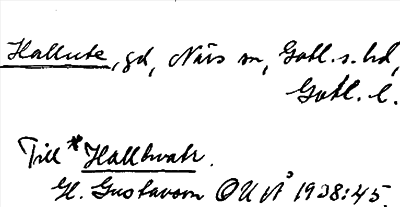 Hallute, gd, Närs sn, Gotl. s. hd,
Gotl. l.
Till *Hallhvatr.
H. Gustavson OUÅ 1938:45.